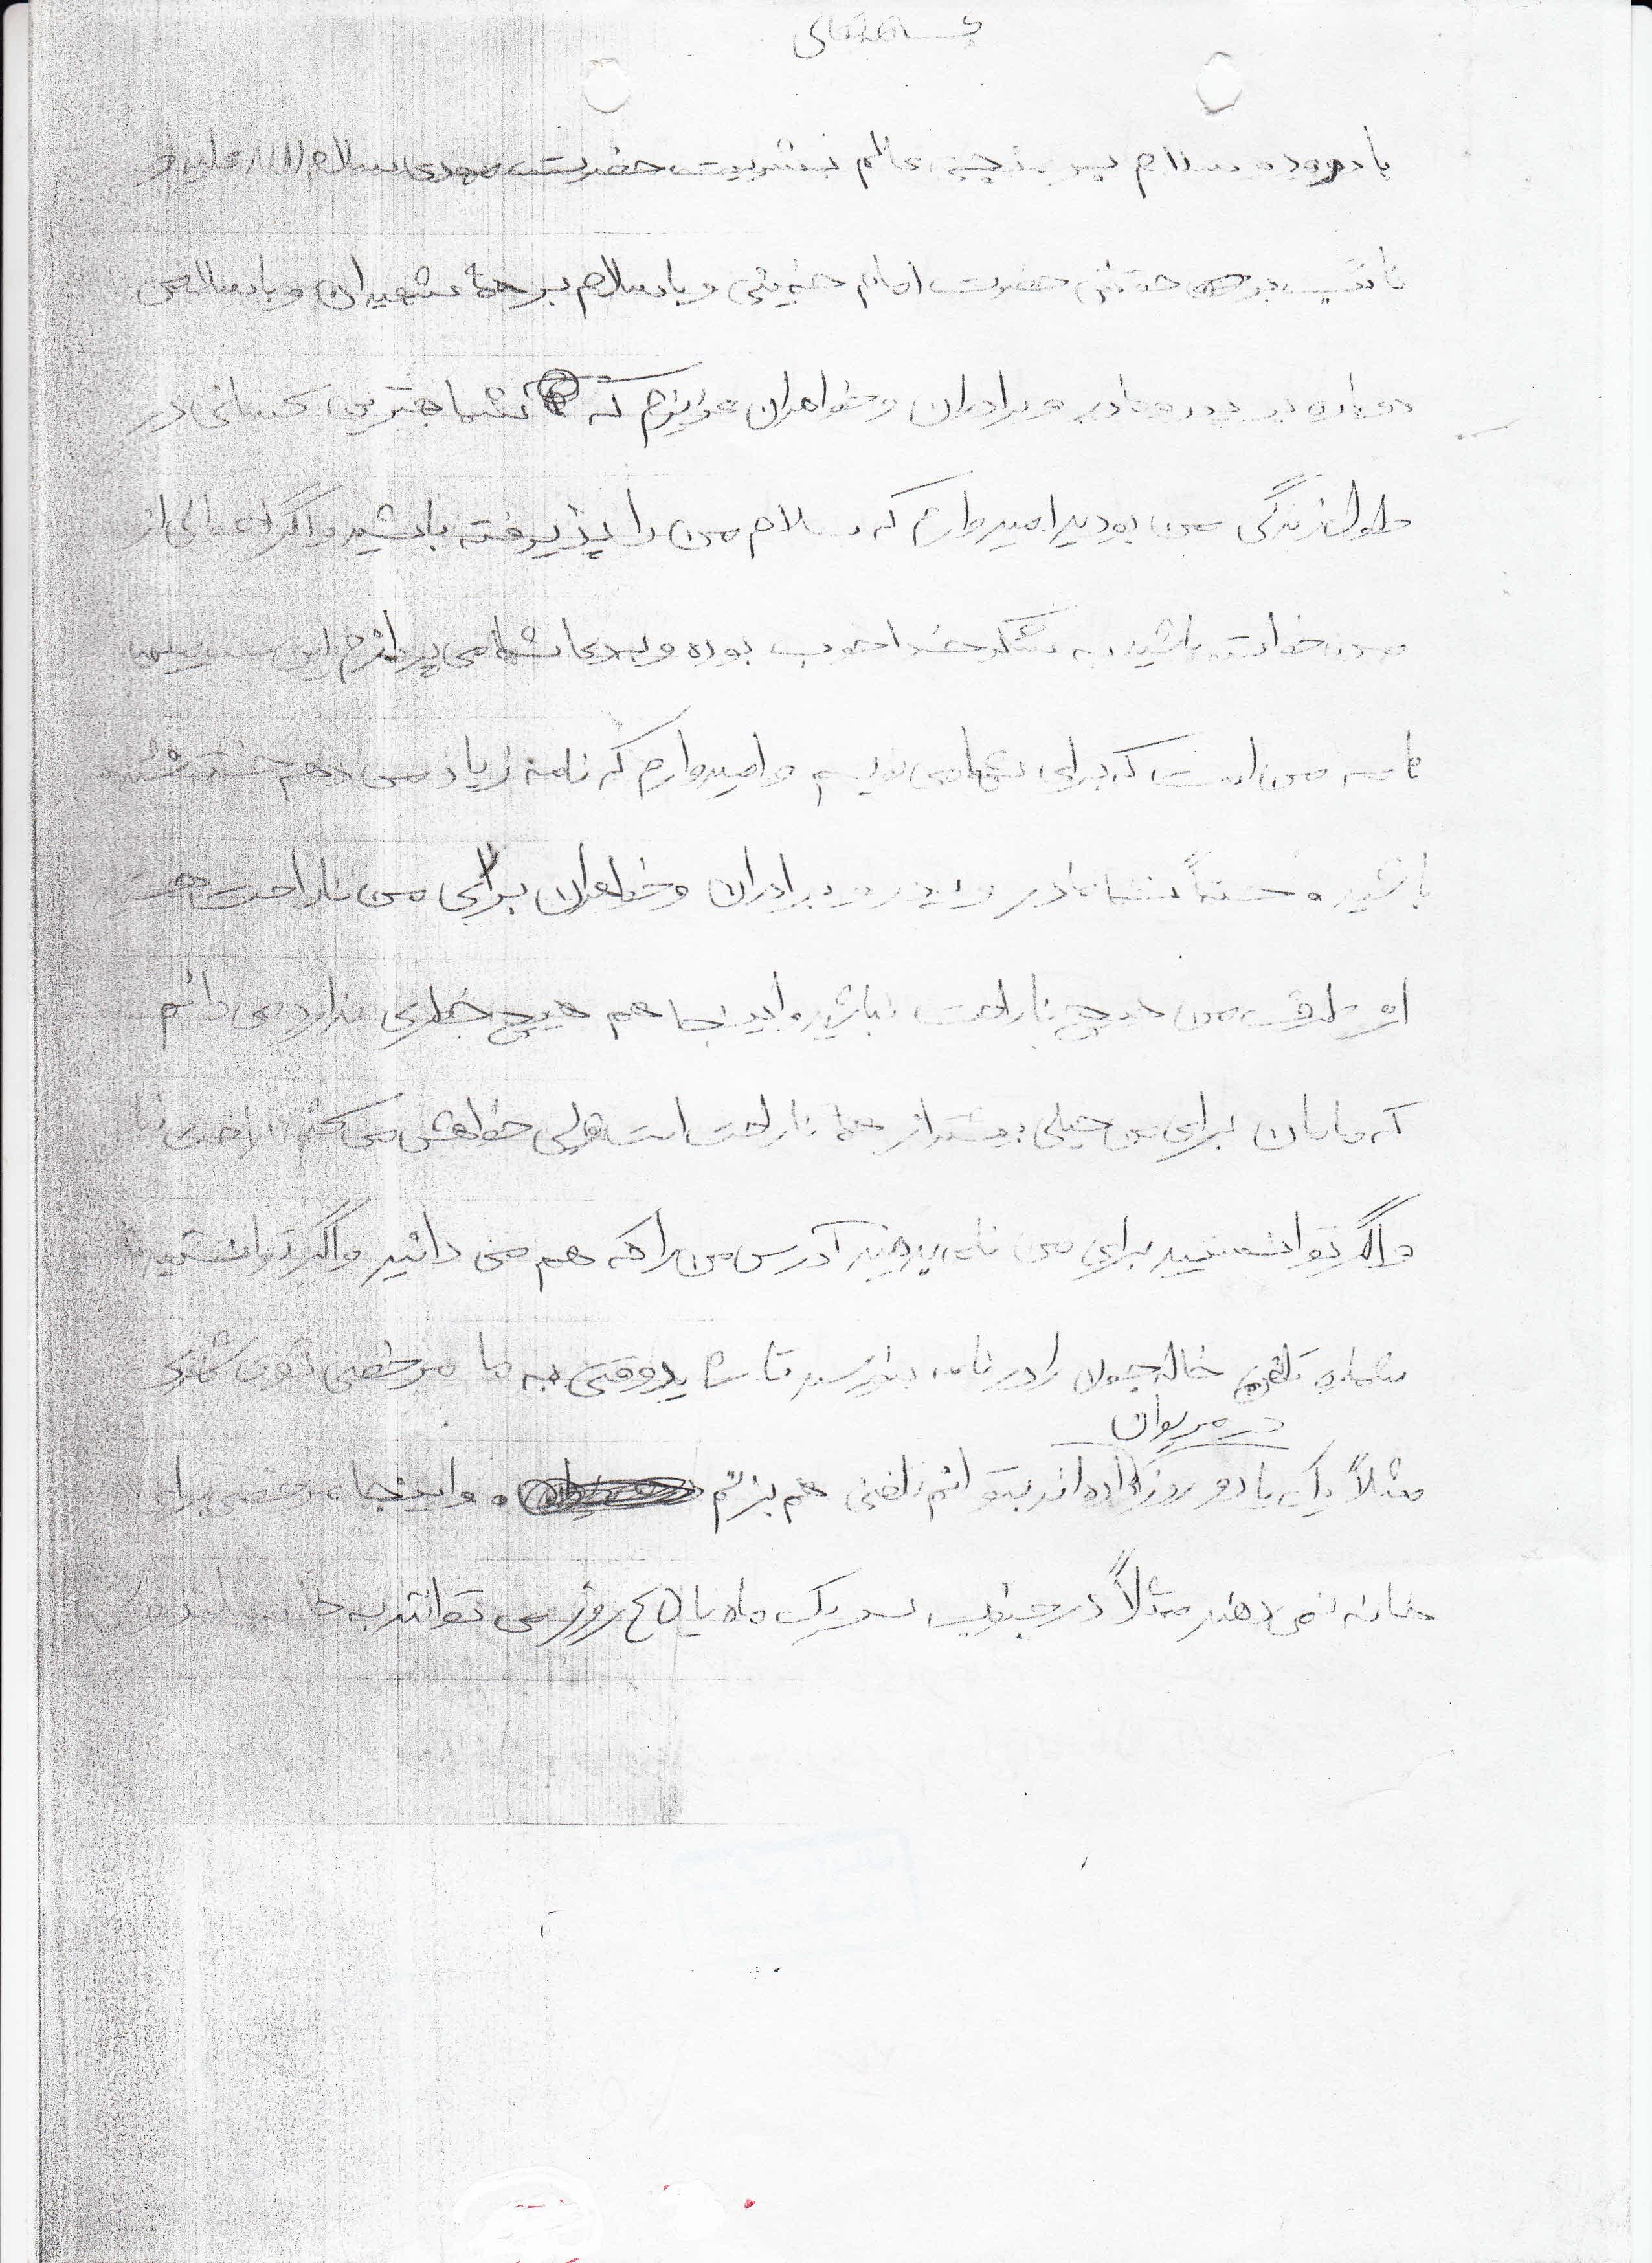 بسمه تعالی
با درود و سلام بر منجی عالم بشریت حضرت مهدی سلام الله علیه و
نائب بر حقش حضرت امام خمینی و با سلام بر همۀ شهیدان و با سلامی
دوباره بر پدر و مادر و برادران و خواهران عزیزم که شما بهترین کسانی در
طول زندگی من بودید امیدوارم که سلام من را پذیرفته باشید و اگر احوالی از
من خواسته باشید به شکر خدا خوب بوده و به دعا شما می پردازم این سومین
نامه من است که برای شما می نویسم و امیدوارم که نامه زیاد می دهم خسته نشده
باشید و حتماً شما مادر و پدر و برادران و خواهران برای من ناراحت هستید
از طرف من هیچ ناراحت نباشید اینجا هم هیچ خطری ندارد می دانم
که مامان برای من خیلی بیشتر از همه ناراحت است ولی خواهش می کنم ناراحت نبا
و اگر توانستید برای من نامه بدهید آدرس من را که هم می دانید و اگر توانستید
شماره تلفن خاله جون را در نامه بنویسید تا شاید وقتی به ما مرخصی توی شهری
در مریوان
مثلاً یک یا دو روز داده اند بتوانم تلفنی هم بزنم و اینجا مرخصی برای
خانه نمی دهند مثلاً در جنوب سر یک ماه یا ۴۵ روز می توانند به خانه بیایند